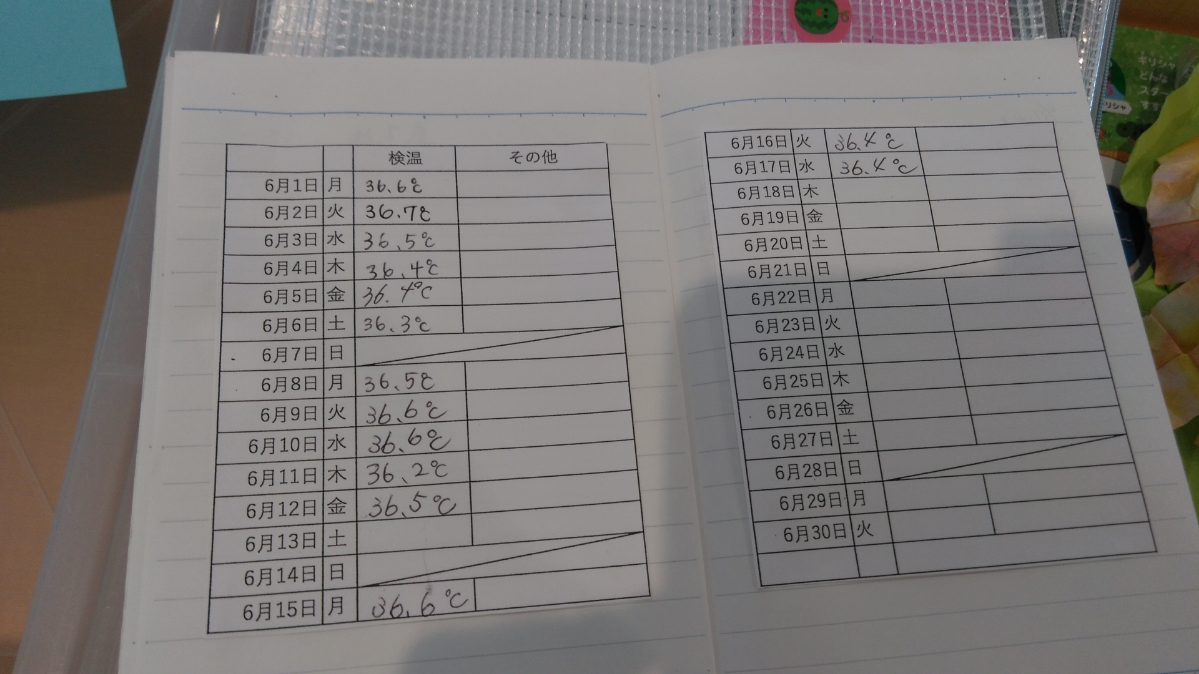 検温 その他
6月1日 月 36.6℃
6月2日 火 36.7℃
6月3日 水 36.5℃
6月4日 木 36.4℃
6月5日 金 36.4℃
6月6日 土 36.3℃
6月7日 日
6月8日 月 36.5℃
6月9日 火 36.6℃
6月10日 水 36.6℃
6月11日 木 36.2℃
6月12日 金 36.5℃
6月13日 土
6月14日 日
6月15日 月 36.6℃
6月16日 火 36.4℃
6月17日 水 36.4℃
6月18日 木
6月19日 金
6月20日 土
6月21日 日
6月22日 月
6月23日 火
6月24日 水
6月25日 木
6月26日 金
6月27日 土
6月28日 日
6月29日 月
6月30日 火
キリシャ
どんな
スター